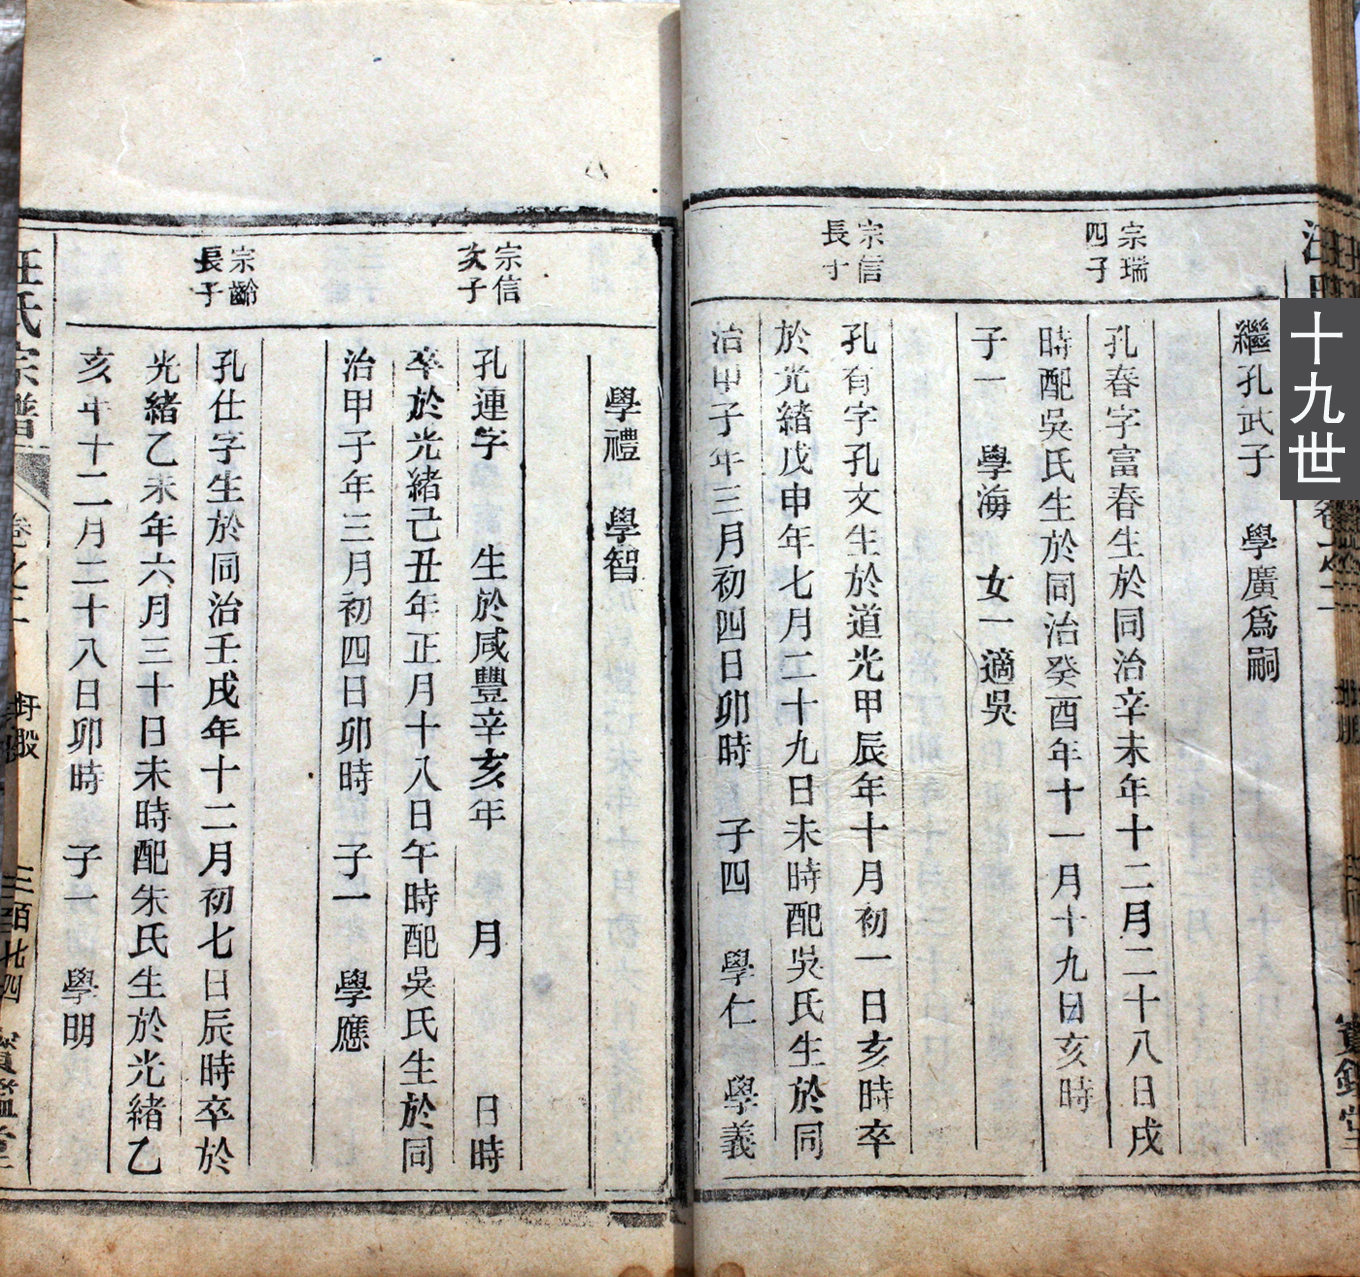 十九世
繼孔武子 學廣爲嗣
宗瑞
四子
孔春字富春生於同治辛未年十二月二十八日戌
時配吳氏生於同治癸酉年十一月十九日亥時
子一 學海 女一適吳
宗信
長子
孔有字孔文生於道光甲辰年十月初一日亥時卒
於光緒戊申年七月二十九日未時配吳氏生於同
治甲子年三月初四日卯時 子四 學仁 學義
學禮 學智
宗信
次子
孔連字 生於咸豐辛亥年 月 日時
卒於光緒己丑年正月十八日午時配吳氏生於同
治甲子年三月初四日卯時 子一 學應
宗齡
長子
孔仕字生於同治壬戌年十二月初七日辰時卒於
光緒乙未年六月三十日未時配朱氏生於光緒乙
亥年十二月二十八日卯時 子一 學明
汪氏宗譜 卷之二 圩股 三百廿四 寶鑑堂